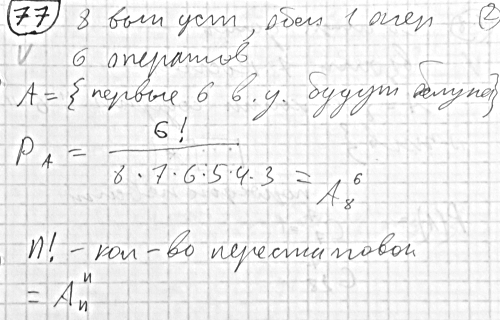 77 8 выч уст, обсл 1 опер 2
V 6 операторов
A = { первые 6 в. у. будут }
P_A = 6! / 8 · 7 · 6 · 5 · 4 · 3 = A_8^6
n! - кол-во перестановок
= A_n^n